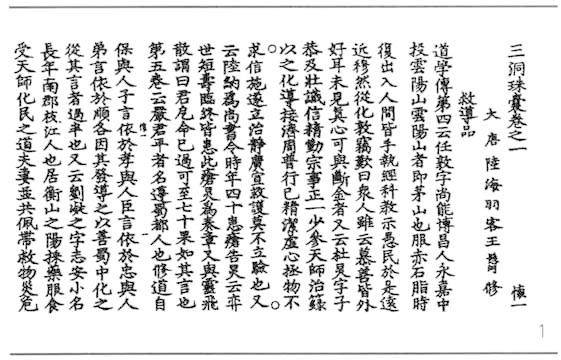 三洞珠囊卷之一 懷一
大唐陸海羽客王懸河修
救導品
道學傳第四云任敦字尚能博昌人永嘉中
投雲陽山雲陽山者即茅山也服赤石脂時
復出入人間皆手執經科教示愚民於是遠
近穆然從化敦竊歎曰衆人雖云慕善皆外
好耳未見真心可與斷金者又云杜炅字子
恭及壯識信精勤宗事正一少參天師治籙
以之化導接濟周普行已精潔虛心拯物不
求信施遂立治靜廣宣救護莫不立驗也又
云陸納爲尚書令時年四十患瘡告炅云弈
世短壽臨終皆患此瘡炅爲奏章又與靈飛
散謂曰君厄命已過可至七十果如其言也
第五卷云嚴君平者名遵蜀郡人也修道自
保與人子言依於孝與人臣言依於忠與人
弟言依於順各因其發導之以善蜀中化之
從其言者過半也又云劉凝之字志安小名
長年南郡枝江人也居衡山之陽採藥服食
受天師化民之道夫妻並共佩帶救物災危
1